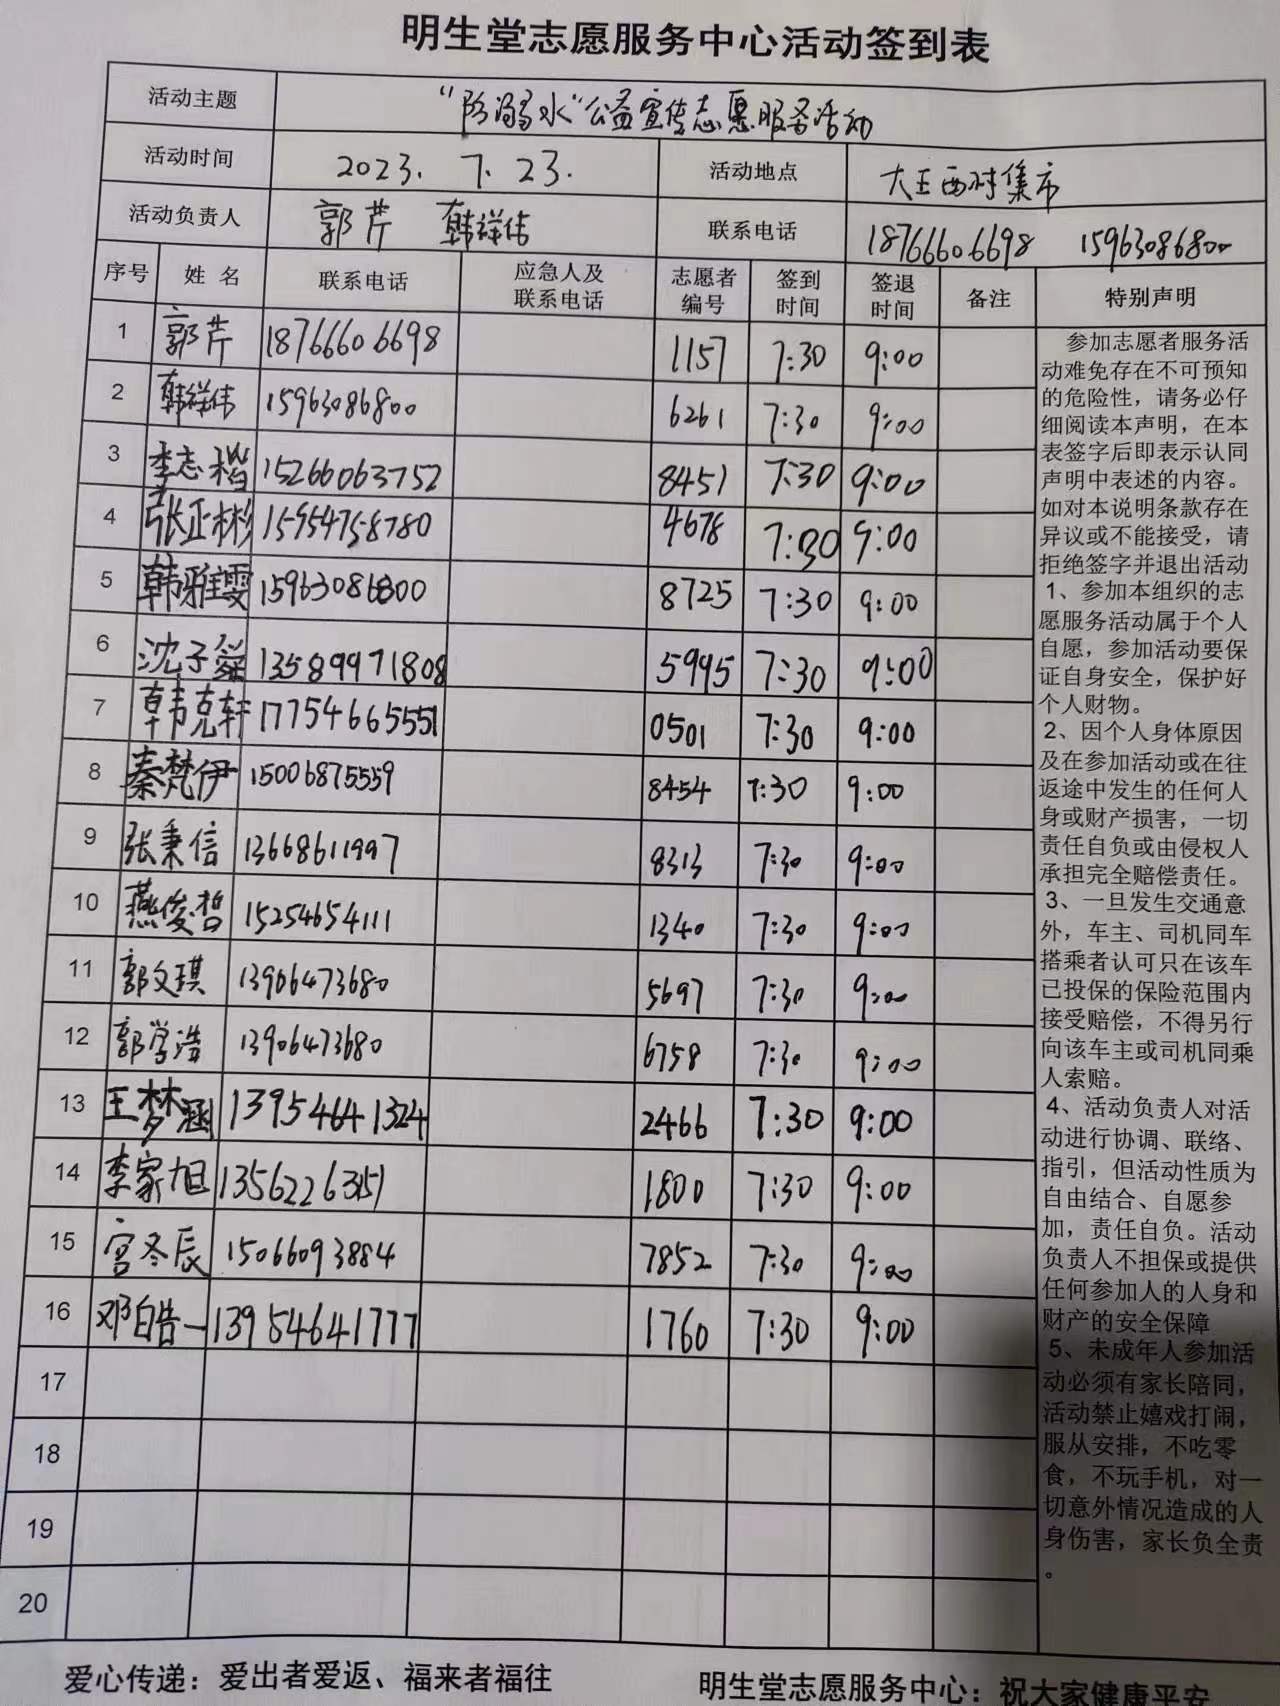 明生堂志愿服务中心活动签到表
活动主题 “防溺水”公益宣传志愿服务活动
活动时间 2023. 7. 23. 活动地点 大王西村集市
活动负责人 郭芹 韩祥伟 联系电话 18766606698 15963086800
序号 姓名 联系电话 应急人及联系电话 志愿者编号 签到时间 签退时间 备注 特别声明
1 郭芹 18766606698 1157 7:30 9:00
2 韩祥伟 15963086800 6261 7:30 9:00
3 李志楷 15266063752 8451 7:30 9:00
4 张正彬 15954758780 4678 7:30 9:00
5 韩雅雯 15963086800 8725 7:30 9:00
6 沈子燊 13589971808 5995 7:30 9:00
7 韩克轩 17754665551 0501 7:30 9:00
8 秦梵伊 15006875559 8454 7:30 9:00
9 张秉信 13668611997 8313 7:30 9:00
10 燕俊哲 15254654111 1340 7:30 9:00
11 郭文琪 13906473680 5697 7:30 9:00
12 郭学浩 13906473680 6758 7:30 9:00
13 王梦涵 13954641324 2466 7:30 9:00
14 李家旭 13562263151 1800 7:30 9:00
15 宫冬辰 15066093884 7852 7:30 9:00
16 邓皓一 13954641777 1760 7:30 9:00
17
18
19
20
参加志愿者服务活
动难免存在不可预知
的危险性，请务必仔
细阅读本声明，在本
表签字后即表示认同
声明中表述的内容。
如对本说明条款存在
异议或不能接受，请
拒绝签字并退出活动
1、参加本组织的志
愿服务活动属于个人
自愿，参加活动要保
证自身安全，保护好
个人财物。
2、因个人身体原因
及在参加活动或在往
返途中发生的任何人
身或财产损害，一切
责任自负或由侵权人
承担完全赔偿责任。
3、一旦发生交通意
外，车主、司机同车
搭乘者认可只在该车
已投保的保险范围内
接受赔偿，不得另行
向该车主或司机同乘
人索赔。
4、活动负责人对活
动进行协调、联络、
指引，但活动性质为
自由结合、自愿参
加，责任自负。活动
负责人不担保或提供
任何参加人的人身和
财产的安全保障
5、未成年人参加活
动必须有家长陪同，
活动禁止嬉戏打闹，
服从安排，不吃零
食，不玩手机，对一
切意外情况造成的人
身伤害，家长负全责
。
爱心传递：爱出者爱返、福来者福往 明生堂志愿服务中心：祝大家健康平安